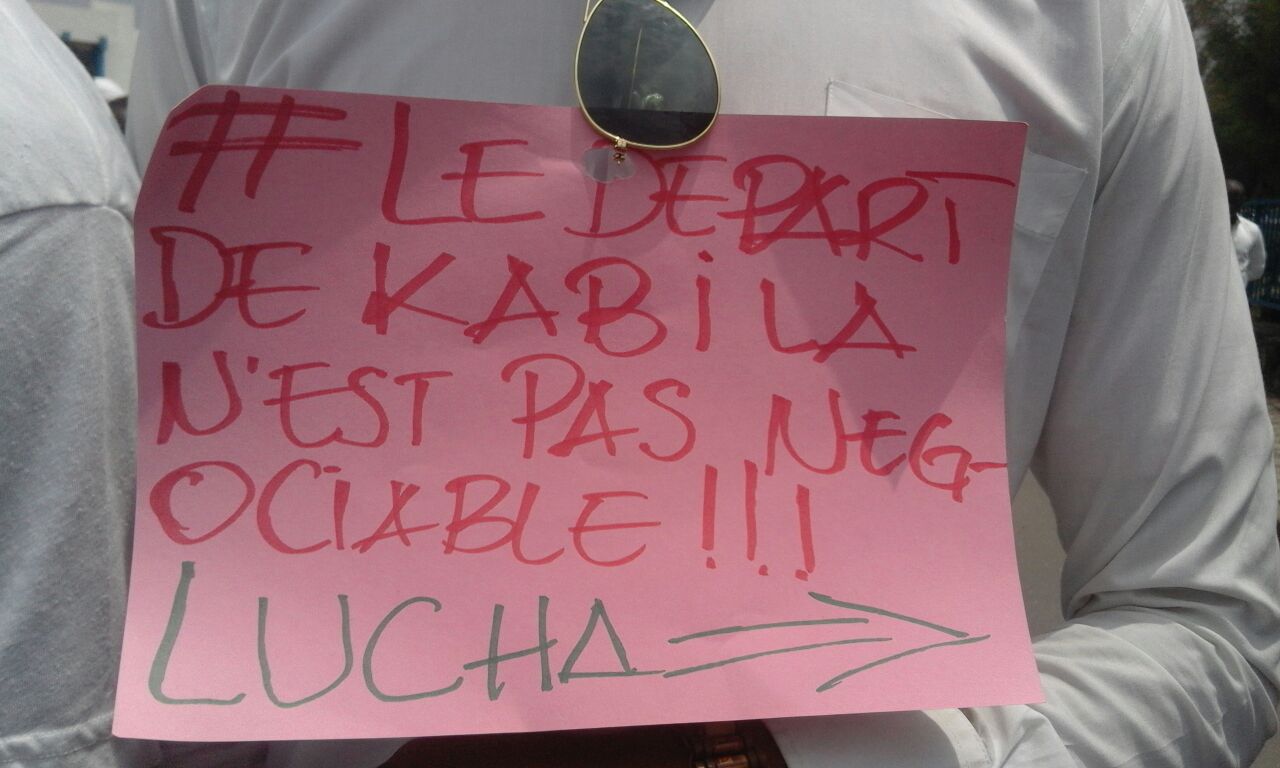 # LE DEPART
DE KABiLA
N'EST PAS NEG-
OCiABLE !!!
LUCHA